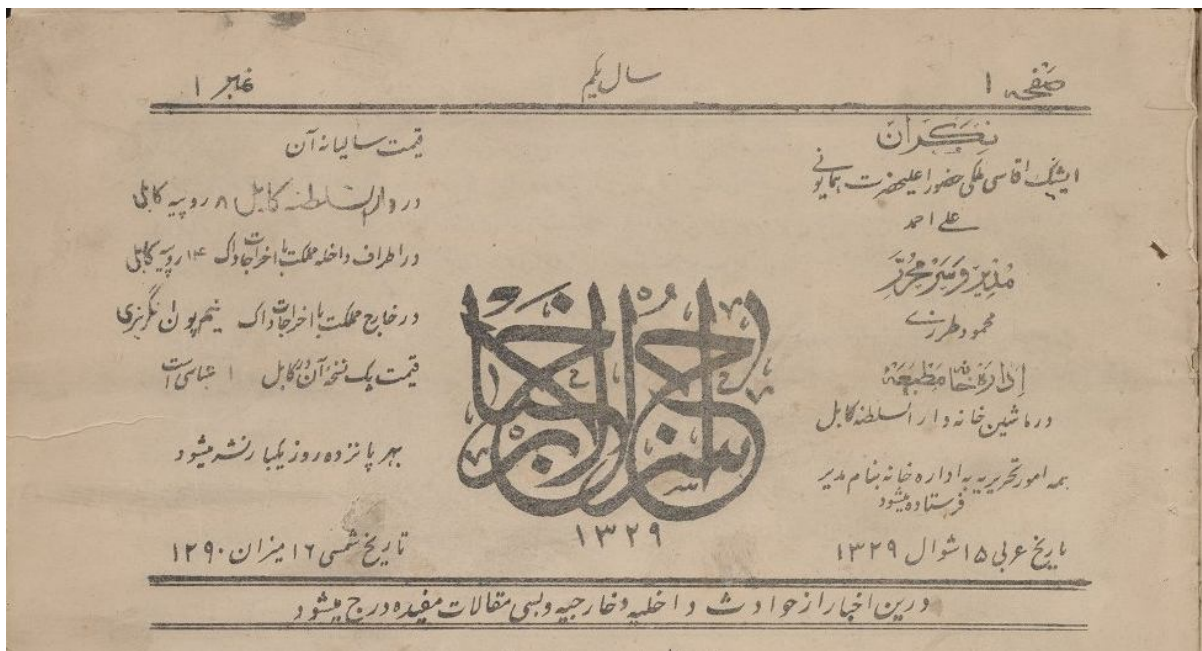 صفحه ۱
سال یکم
نمبر ۱
نگران
ایشک اقاسی ملکی حضور اعلیحضرت همایونی
علی احمد
مدیر و سر محرر
محمود طرزی
اداره خانه مطبعه
در ماشین خانه دار السلطنه کابل
همه امور تحریریه به اداره خانه بنام مدیر
فرستاده میشود
تاریخ عربی ۱۵ شوال ۱۳۲۹
سراج الاخبار
۱۳۲۹
قیمت سالیانه آن
در دار السلطنه کابل ۸ روپیه کابلی
در اطراف داخله مملکت با اخراجات داک ۱۴ روپیه کابلی
در خارج مملکت با اخراجات داک نیم پوان نگریزی
قیمت یک نسخه آن در کابل ۱ عباسی است
بهر پانزده روز یکبار نشر میشود
تاریخ شمسی ۱۶ میزان ۱۲۹۰
درین اخبار از حوادث داخلیه و خارجیه و بسی مقالات مفیده درج میشود